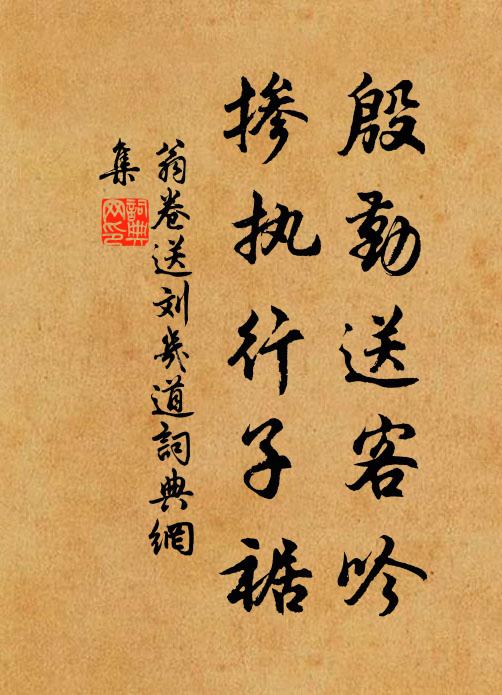 殷勤送客吟
掺执行子裾
翁卷送刘幾道詞典網
集
詞典
网印